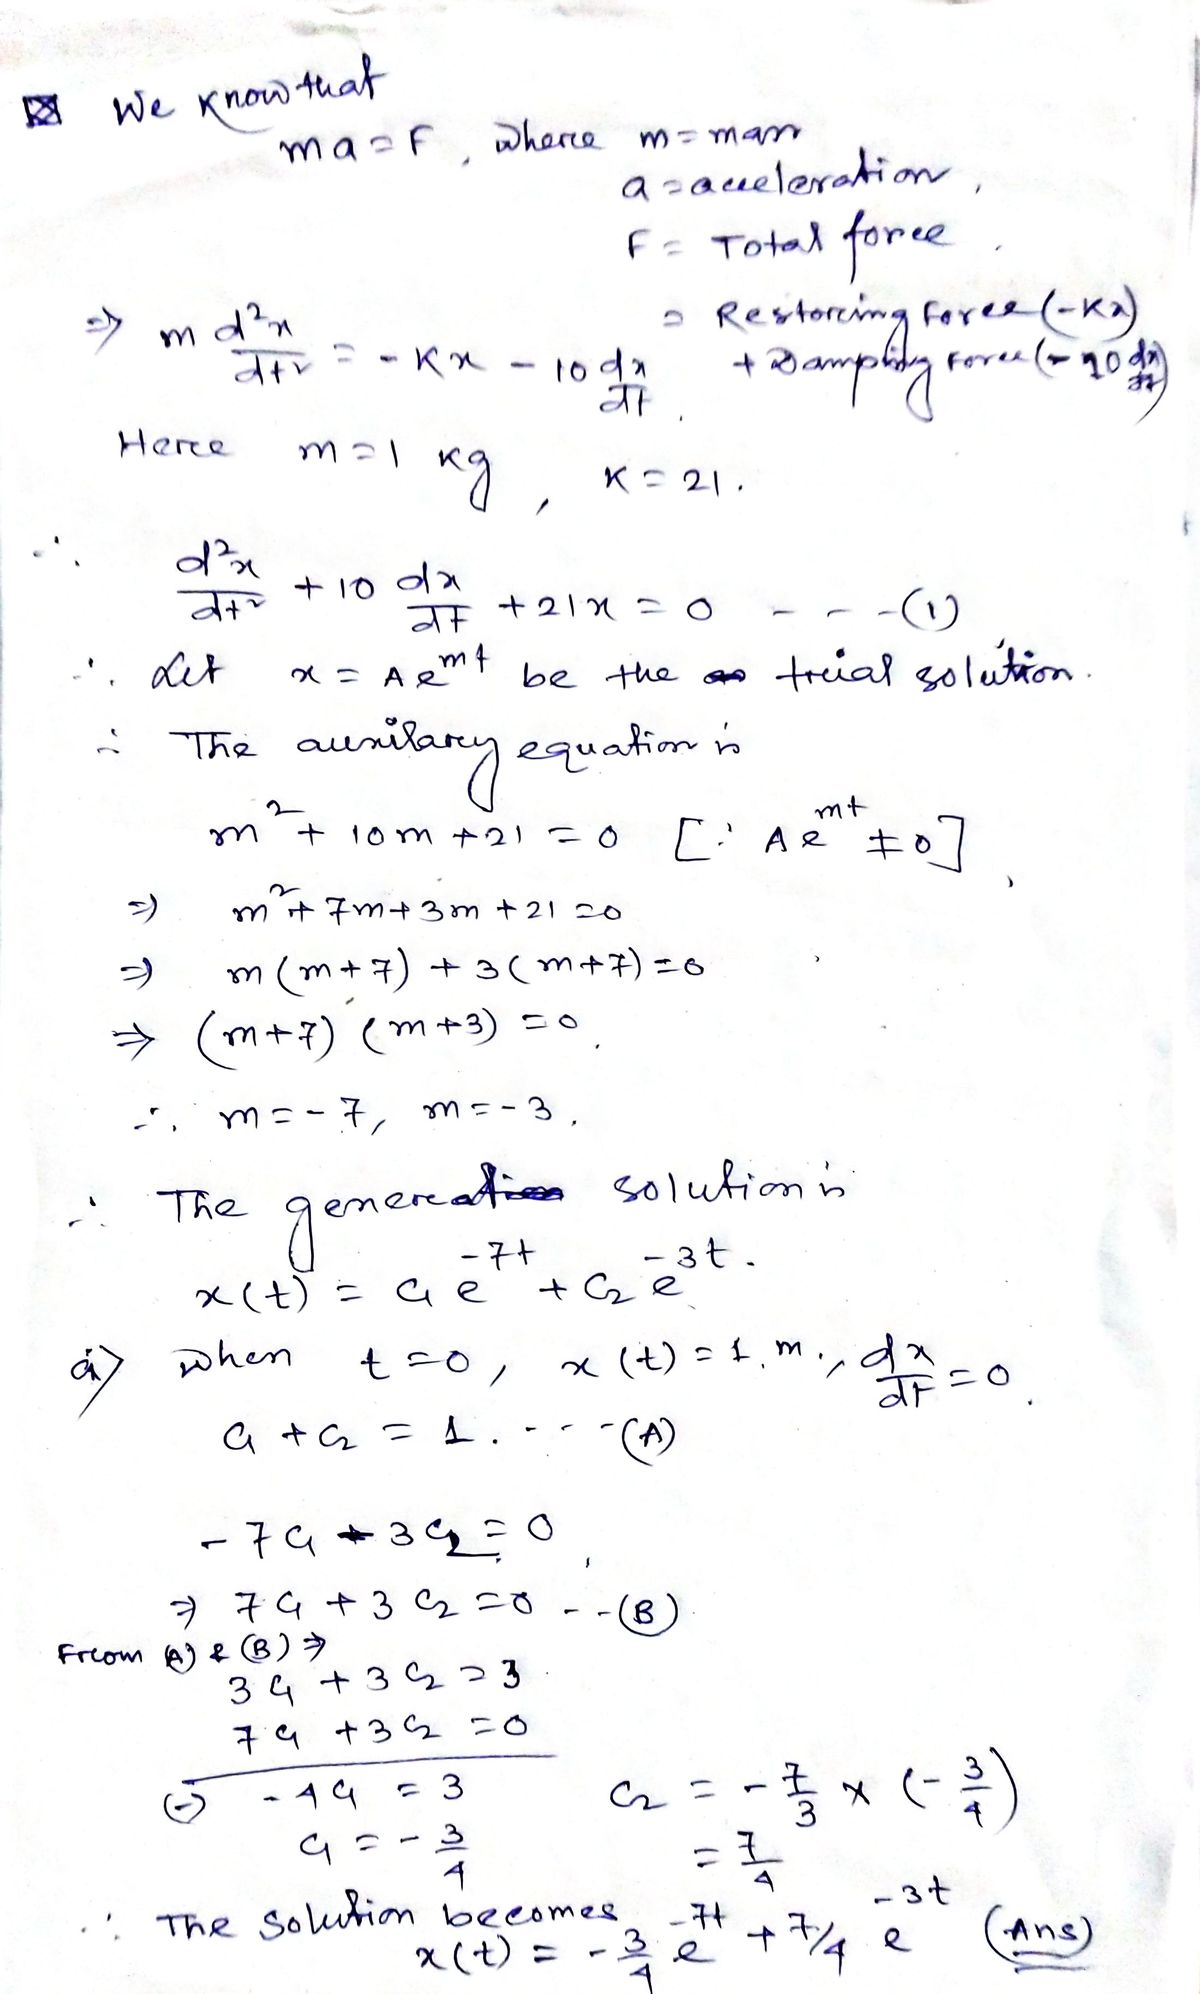 We know that
ma = F, where m = mass
a = acceleration,
F = Total force.
= Restoring Force (-Kx)
+ Damping Force (- 10 dx/dt)
⇒ m d²x/dt² = - Kx - 10 dx/dt.
Here m = 1 kg, K = 21.
∴ d²x/dt² + 10 dx/dt + 21x = 0 - - - (1)
∴ Let x = Ae^mt be the trial solution.
∴ The auxilary equation is
m² + 10m + 21 = 0 [∵ Ae^mt ≠ 0]
⇒ m² + 7m + 3m + 21 = 0
⇒ m(m+7) + 3(m+7) = 0
⇒ (m+7) (m+3) = 0.
∴ m = -7, m = -3.
∴ The general solution is
x(t) = C₁ e^-7t + C₂ e^-3t.
a) when t = 0, x(t) = 1. m., dx/dt = 0.
C₁ + C₂ = 1. - - - (A)
- 7C₁ - 3C₂ = 0,
⇒ 7C₁ + 3C₂ = 0 - - (B)
From (A) & (B) ⇒
3C₁ + 3C₂ = 3
7C₁ + 3C₂ = 0
(-) - 4C₁ = 3
C₁ = - 3/4
C₂ = - 7/3 × (- 3/4)
= 7/4
∴ The solution becomes
x(t) = - 3/4 e^-7t + 7/4 e^-3t (Ans)